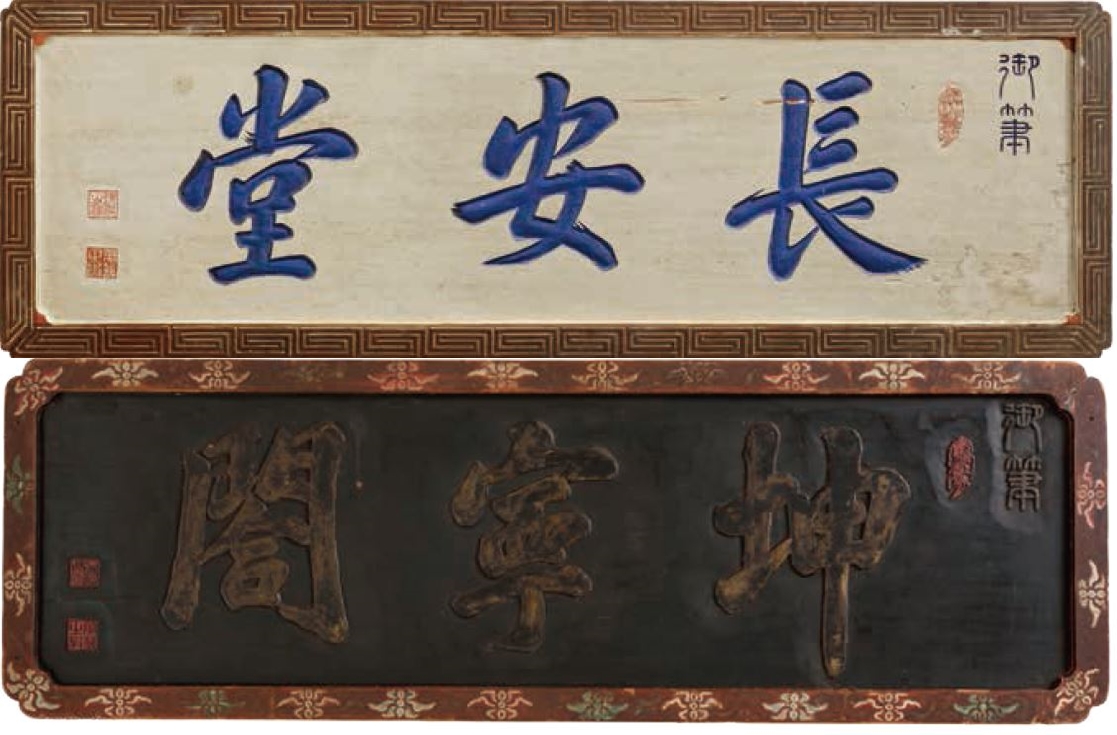 御筆
長安堂
御筆
坤寧閤